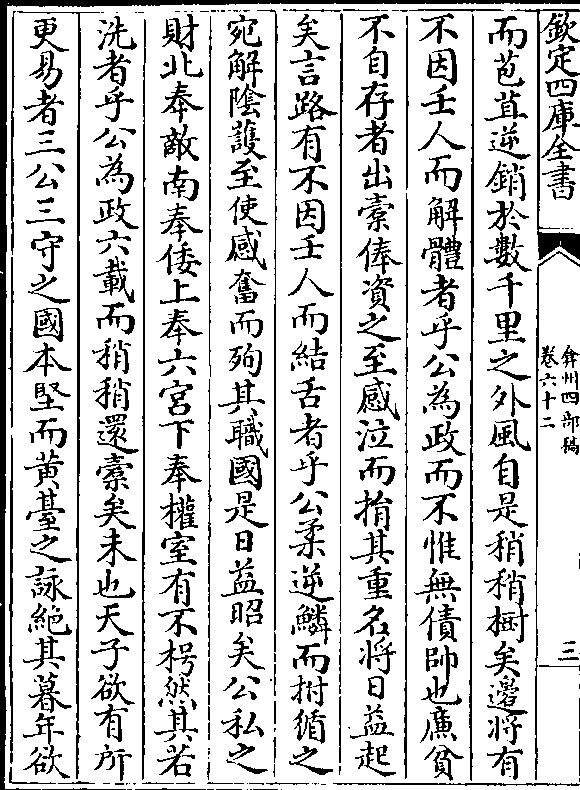 欽定四庫全書
弇州四部稿
卷六十二
三
而苞苴逆銷於數千里之外風自是稍稍樹矣邊將有
不因壬人而解體者乎公為政而不惟無債帥也廉貧
不自存者出橐俸資之至感泣而捐其重名將日益起
矣言路有不因壬人而結舌者乎公柔逆鱗而拊循之
宛解陰護至使感奮而殉其職國是日益昭矣公私之
財北奉敵南奉倭上奉六宮下奉權室有不枵然其若
洗者乎公為政六載而稍稍還橐矣未也天子欲有所
更易者三公三守之國本堅而黃臺之詠絕其暮年欲